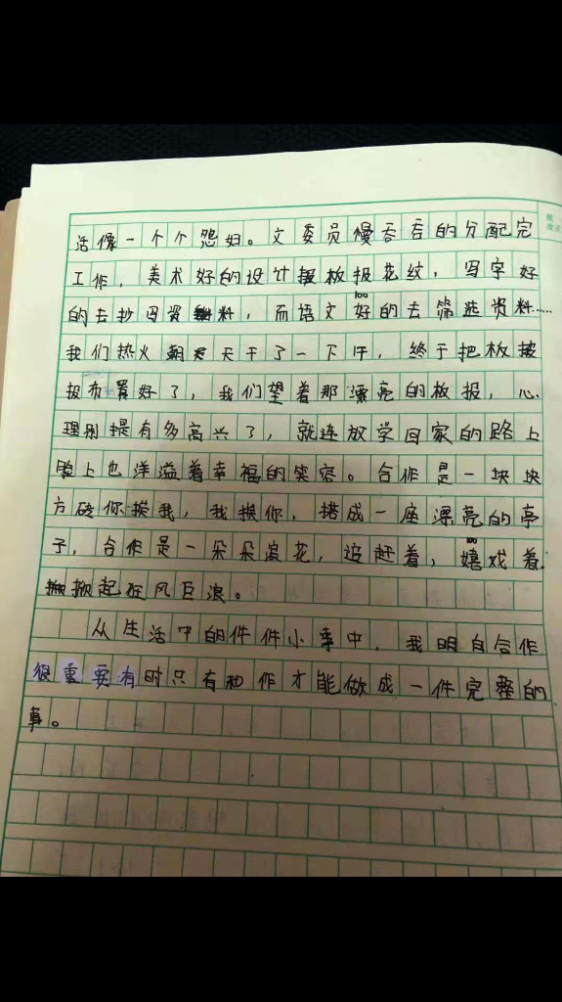 活像一个个怨妇。文委员慢吞吞的分配完
工作，美术好的设计板报花纹，写字好
的去抄写资料，而语文好的去筛选资料……
我们热火朝天干了一下午，终于把板
报布置好了，我们望着那漂亮的板报，心
理别提有多高兴了，就连放学回家的路上
脸上也洋溢着幸福的笑容。合作是一块块
方砖你挨我，我挨你，搭成一座漂亮的亭
子，合作是一朵朵浪花，追赶着，嬉戏着
掀起狂风巨浪。
从生活中的件件小事中，我明白合作
很重要有时只有和作才能做成一件完整的
事。